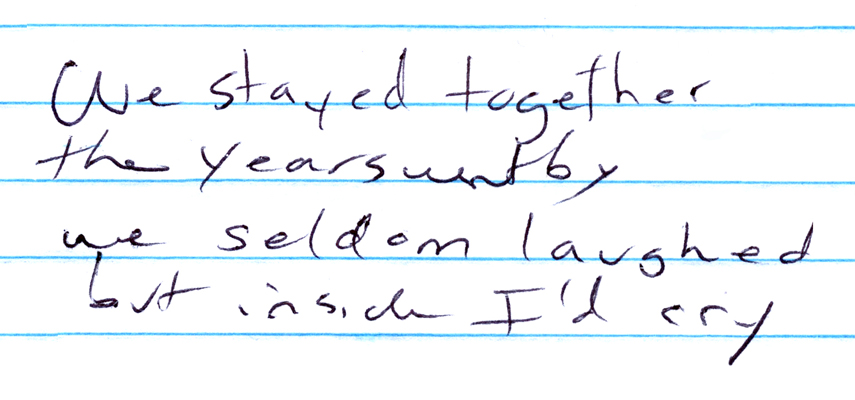 We stayed together
the years went by
we seldom laughed
but inside I'd cry